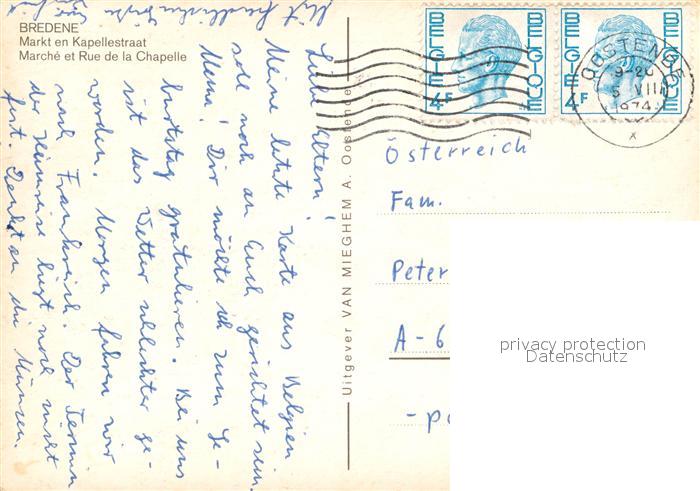 BREDENE
Markt en Kapellestraat
Marché et Rue de la Chapelle
Liebe Eltern!
Meine letzte Karte aus Belgien
soll noch an Euch gerichtet sein.
Mama! Dir möchte ich zum Ge-
burtstag gratulieren. Bei uns
ist das Wetter schlechter ge-
worden. Morgen fahren wir
nach Frankreich. Der Termin
der Heimreise liegt noch nicht
fest. Denkt an die Münzen.
Mit herzlichen
Uitgever VAN MIEGHEM A. Oostende
BELGIE BELGIQUE
4F
BELGIE BELGIQUE
4F
OOSTENDE
5 VIII
1974
Österreich
Fam.
Peter
A-6
privacy protection
Datenschutz